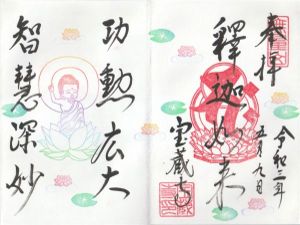 奉拝
釋迦如来
令和二年
五月九日
宝蔵寺
功勲広大
智慧深妙